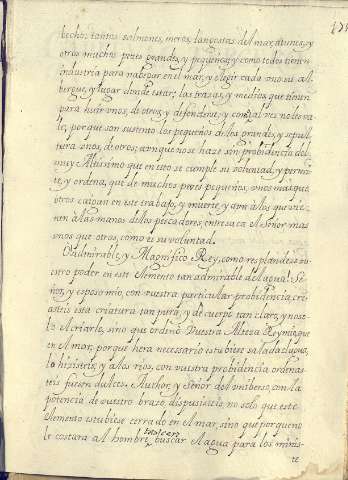 hecho, tantos salmones, meros, langostas del mar, atunes, y
otros muchos peces grandes, y pequeños, y como todos tienen
industria para nabegar en el mar, y elegir cada vno su al
bergue, y lugar donde estar; las trasas, y medios que tienen
para huir vnos, de otros, y defenderse, y con tal
te, porque son sustento los pequeños de los grandes, y sepul
tura vnos, de otros; aunque no se haze sin probidencia del
muy Altissimo que en esto se cumple su voluntad, y permi
te, y ordena, que de muchos peces pequeños, vnos mas que
otros caigan en este trabajo, y muerte, y aun a los que vie-
nen a las manos de los pescadores, entresaca el Señor mas
vnos que otros, como es su voluntad.
O admirable, y Magnifico Rey, como resplandese vu
estro poder en este elemento tan admirable del agua! Se
ñor, y esposo mio, con vuestra particular probidencia cri
asteis esta criatura tan pura, y de cuerpo tan claro, y no so
lo el criarle, sino que ordenó Vuestra Alteza Reynase
en el Mar, porque hera necessario estubiese salada el agua,
lo hisisteis, y a los rios, con vuestra probidencia ordenas
teis fuesen dulces. Author, y Señor del vniberso, con la
potencia de vuestro brazo, dispusisteis, no solo que este
elemento estubiese cerrado en el mar, sino que porque no
le costara al hombre buscar el agua para los minis-
te